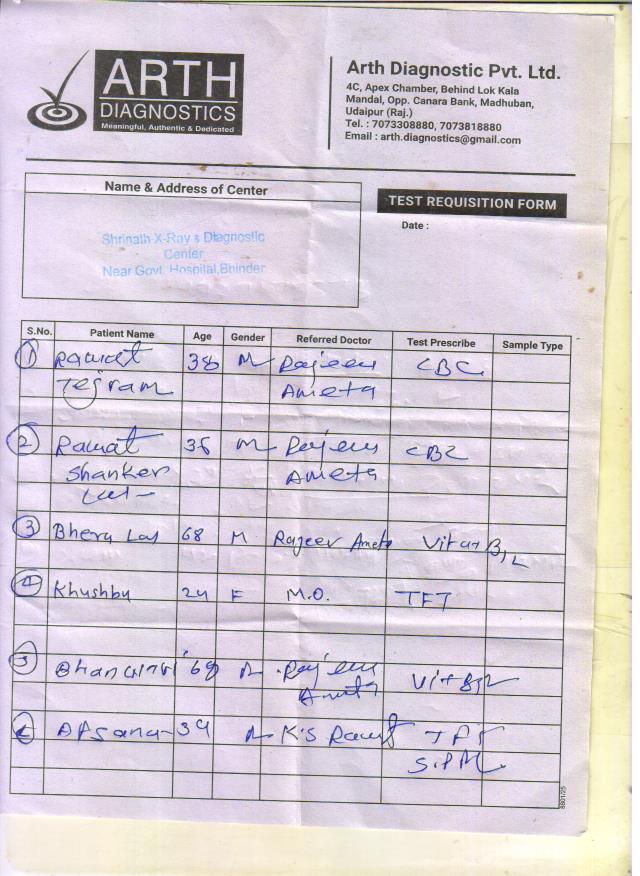 ARTH
DIAGNOSTICS
Meaningful, Authentic & Dedicated
Arth Diagnostic Pvt. Ltd.
4C, Apex Chamber, Behind Lok Kala
Mandal, Opp. Canara Bank, Madhuban,
Udaipur (Raj.)
Tel. : 7073308880, 7073818880
Email : arth.diagnostics@gmail.com
Name & Address of Center
TEST REQUISITION FORM
Date :
Shrinath X-Ray & Diagnostic
Center
Near Govt. Hospital, Bhinder
S.No. Patient Name Age Gender Referred Doctor Test Prescribe Sample Type
1 Rawat 38 M Rajeev CBC
Tejram Ameta
2 Rawat 36 M Rajeev CBC
Shanker Ameta
Lal
3 Bhera Lal 68 M Rajeev Ameta Vit B12
4 Khushbu 24 F M.O. TFT
5 68 Rajeev Vit B12
Ameta
Afsana 34 K.S Rawat TFT
8801/25